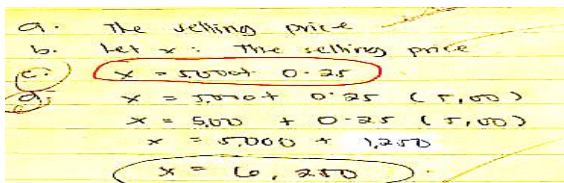 a. The selling price
b. Let x : The selling price
c. x = 5,000 + 0.25
d. x = 5,000 + 0.25 (5,00)
x = 5,00 + 0.25 (5,00)
x = 5,000 + 1,250
x = 6,250